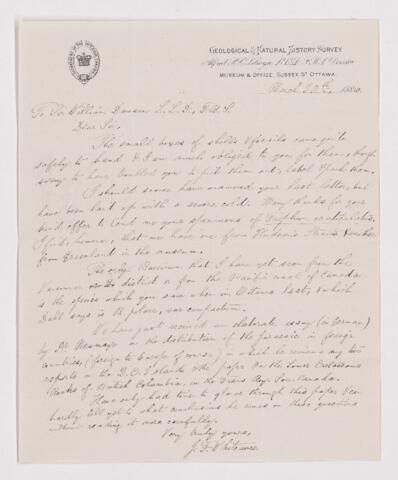 GEOLOGICAL & NATURAL HISTORY SURVEY
Alfred R. C. Selwyn, L.L.D. F.R.S. Director
MUSEUM & OFFICE, SUSSEX ST OTTAWA.
March 20th, 1886.
To Sir William Dawson L.L.D., F.R.S.
Dear Sir,
The small boxes of shells & fossils came quite
safely to hand & I am much obliged to you for them, though
sorry to have troubled you to pick them out, label & pack them.
I should sooner have answered your last letter, but
have been laid up with a severe cold. Many thanks for your
kind offer to lend me your specimens of
I find, however, that we have one from Hudson's Straits & another
from Greenland in the museum.
The only Buccinum that I have yet seen from the
Vancouver district or from the Pacific coast of Canada
is the species which you saw when in Ottawa last, & which
Dall says is B. var.
We have just received an elaborate essay (in German)
by Dr. Neumayr on the distribution of the Jurassic in foreign
countries, (foreign to Europe of course) in which he reviews my two
reports on the Q. C. Islands & the paper On the Lower Cretaceous
Rocks of British Columbia, in the Trans. Roy. Soc. Canada.
Have only had time to glance through this paper & can
hardly tell yet to what conclusions he comes on these questions
without reading it more carefully.
Very truly yours,
J. F. Whiteaves